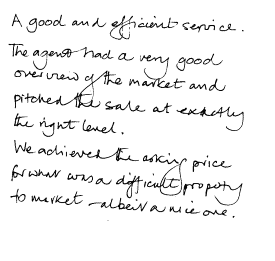 A good and efficient service.
The agent had a very good
overview of the market and
pitched the sale at exactly
the right level.
We achieved the asking price
for what was a difficult property
to market - albeit a nice one.